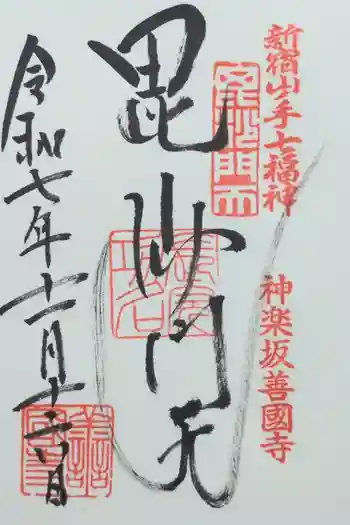 新宿山ノ手七福神
神楽坂善國寺
毘沙門天
令和七年十一月十六日